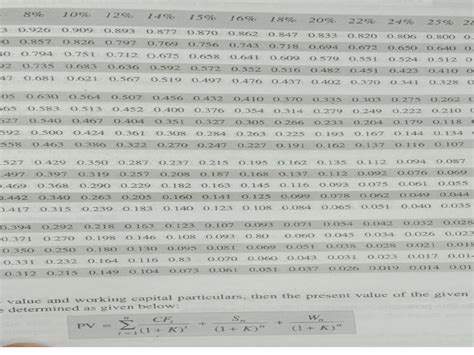 8% 10% 12% 14% 15% 16% 18% 20% 22% 24% 25%
0.926 0.909 0.893 0.877 0.870 0.862 0.847 0.833 0.820 0.806 0.800
0.857 0.826 0.797 0.769 0.756 0.743 0.718 0.694 0.672 0.650 0.640
0.794 0.751 0.712 0.675 0.658 0.641 0.609 0.579 0.551 0.524 0.512
0.735 0.683 0.636 0.592 0.572 0.552 0.516 0.482 0.451 0.423 0.410
0.681 0.621 0.567 0.519 0.497 0.476 0.437 0.402 0.370 0.341 0.328
0.630 0.564 0.507 0.456 0.432 0.410 0.370 0.335 0.303 0.275 0.262
0.583 0.513 0.452 0.400 0.376 0.354 0.314 0.279 0.249 0.222 0.210
0.540 0.467 0.404 0.351 0.327 0.305 0.266 0.233 0.204 0.179
0.500 0.424 0.361 0.308 0.284 0.263 0.225 0.193 0.167 0.144 0.134
0.463 0.386 0.322 0.270 0.247 0.227 0.191 0.162 0.137 0.116 0.107
0.350 0.287 0.237 0.215 0.195 0.162 0.135 0.112 0.094 0.087
0.397 0.319 0.257 0.208 0.187 0.168 0.137 0.112 0.092 0.076 0.069
0.368 0.290 0.229 0.182 0.163 0.145 0.116 0.093 0.075 0.061 0.055
0.340 0.263 0.205 0.160 0.141 0.125 0.099 0.078 0.062 0.049 0.044
0.315 0.239 0.183 0.140 0.123 0.108 0.084 0.065 0.051 0.040 0.035
0.292 0.218 0.163 0.123 0.107 0.093 0.071 0.054 0.042 0.032
0.371 0.270 0.198 0.146 0.108 0.093 0.060 0.045 0.034 0.026
0.250 0.180 0.130 0.095 0.081 0.069 0.051 0.038 0.028 0.021
0.331 0.232 0.164 0.116 0.070 0.060 0.043 0.031 0.023 0.017
0.312 0.215 0.149 0.104 0.073 0.051 0.037 0.026 0.019 0.014
value and working capital particulars, then the present value of the given
determined as given below:
PV = n Σ t=1 CFt/(1 + K)^t + Sn/(1 + K)^n + Wn/(1 + K)^n